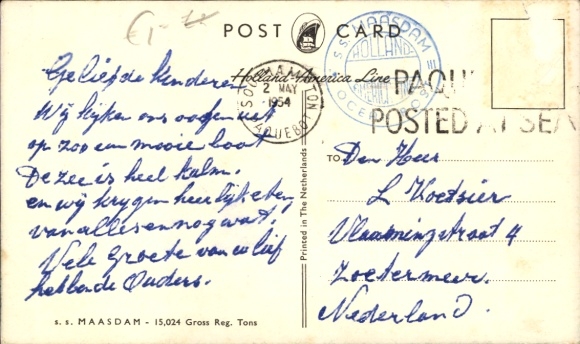 POST CARD
Holland-America Line
S.S. MAASDAM
HOLLAND
AMERICA
SOUTHAMPTON
2 MAY
1954
PAQUEBOT
PAQU
POSTED AT SEA
Geliefde kinderen
Wij kijken ons oogen uit
op zoo een mooie boot
De zee is heel kalm.
en wij krygen heerlijk eten
van alles en nog wat.
Vele Groete van uw lief
hebbende Ouders.
s. s. MAASDAM - 15,024 Gross Reg. Tons
Printed in The Netherlands
TO Den Heer
L Koetsier
Vlamingstraat 4
Zoetermeer.
Nederland.